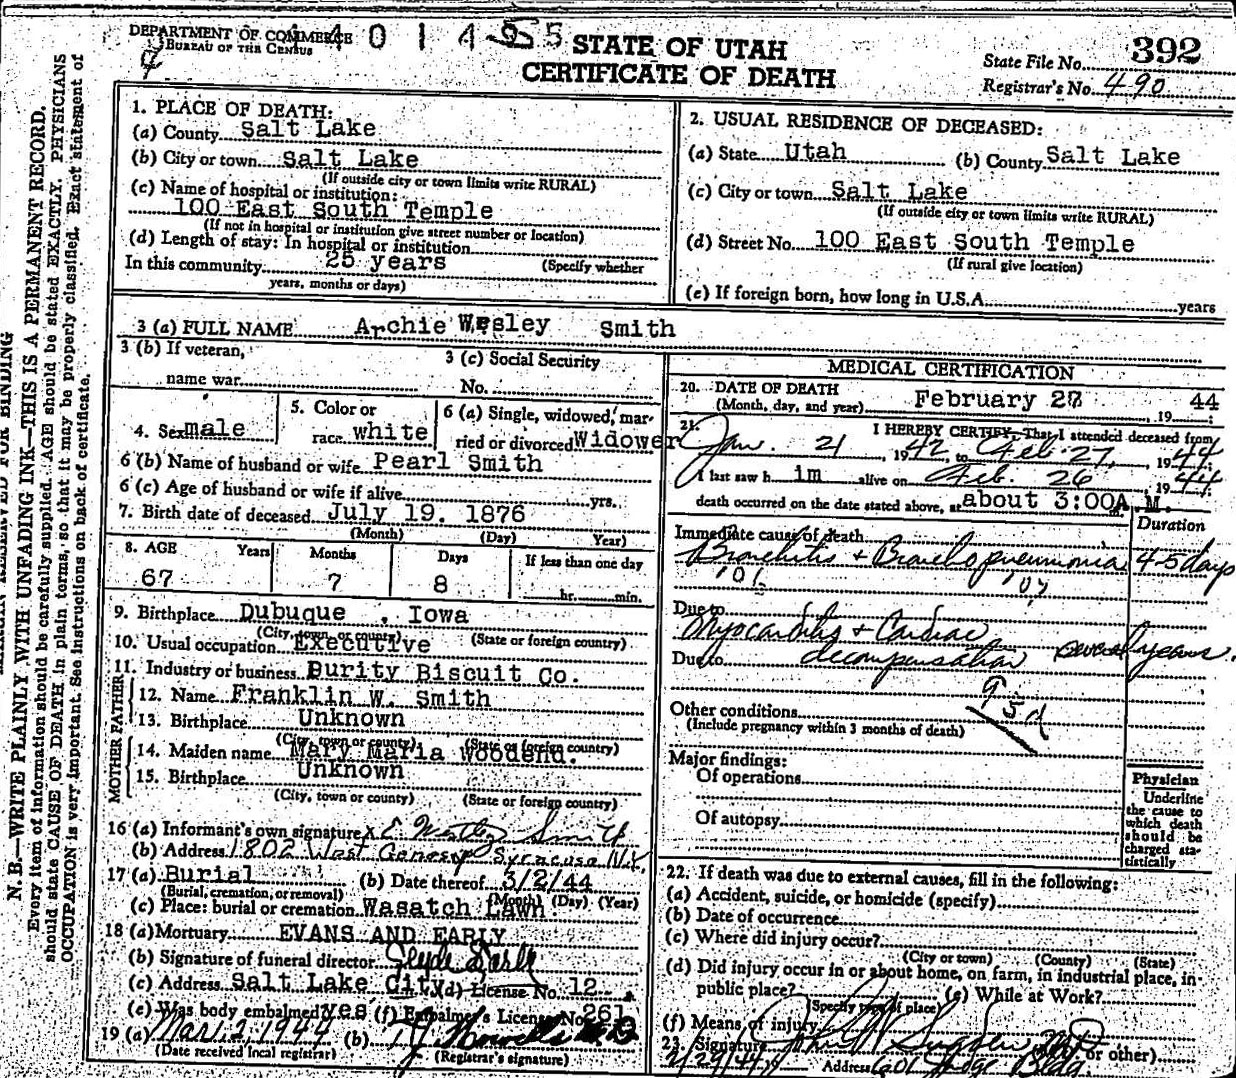 DEPARTMENT OF COMMERCE
BUREAU OF THE CENSUS
STATE OF UTAH
CERTIFICATE OF DEATH
State File No. 392
Registrar's No. 490
N. B.—WRITE PLAINLY WITH UNFADING INK—THIS IS A PERMANENT RECORD.
Every item of information should be carefully supplied. AGE should be stated EXACTLY. PHYSICIANS
should state CAUSE OF DEATH in plain terms, so that it may be properly classified. Exact statement of
OCCUPATION is very important. See instructions on back of certificate.
1. PLACE OF DEATH:
(a) County Salt Lake
(b) City or town Salt Lake
(If outside city or town limits write RURAL)
(c) Name of hospital or institution:
100 East South Temple
(If not in hospital or institution give street number or location)
(d) Length of stay: In hospital or institution
In this community 25 years (Specify whether
years, months or days)
2. USUAL RESIDENCE OF DECEASED:
(a) State Utah (b) County Salt Lake
(c) City or town Salt Lake
(If outside city or town limits write RURAL)
(d) Street No. 100 East South Temple
(If rural give location)
(e) If foreign born, how long in U.S.A. years
3 (a) FULL NAME Archie Wesley Smith
3 (b) If veteran, 3 (c) Social Security
name war No.
4. Sex male
5. Color or
race white
6 (a) Single, widowed, mar-
ried or divorced Widower
6 (b) Name of husband or wife Pearl Smith
6 (c) Age of husband or wife if alive yrs.
7. Birth date of deceased July 19. 1876
(Month) (Day) Year)
8. AGE Years Months Days If less than one day
67 7 8 hr. min.
9. Birthplace Dubuque , Iowa
(City, town or county) (State or foreign country)
10. Usual occupation Executive
11. Industry or business Purity Biscuit Co.
FATHER
12. Name Franklin W. Smith
13. Birthplace Unknown
(City, town or county) (State or foreign country)
MOTHER
14. Maiden name Mary Maria Woodend.
15. Birthplace Unknown
(City, town or county) (State or foreign country)
16 (a) Informant's own signature X E Westley Smith
(b) Address 1802 West Genesy Syracuse N.Y.
17 (a) Burial (b) Date thereof 3/2/44
(Burial, cremation, or removal) (Month) (Day) (Year)
(c) Place: burial or cremation Wasatch Lawn
18 (a) Mortuary EVANS AND EARLY
(b) Signature of funeral director Clyde Early
(c) Address Salt Lake City (d) License No. 12
(e) Was body embalmed yes (f) Embalmer's License No. 261
19 (a) Mar. 2, 1944 (b)
(Date received local registrar) (Registrar's signature)
MEDICAL CERTIFICATION
20. DATE OF DEATH
(Month, day, and year) February 27 19 44
21. I HEREBY CERTIFY, That I attended deceased from
Jan. 21, 1942, to Feb. 27, 1944;
I last saw him alive on Feb. 26 1944
death occurred on the date stated above, at about 3:00A.M.
Immediate cause of death Duration
Bronchitis + Bronchopneumonia 4-5 days
Due to
Myocarditis + Cardiac
Due to decompensation several years.
93d
Other conditions
(Include pregnancy within 3 months of death)
Major findings:
Of operations
Of autopsy
Physician
Underline
the cause to
which death
should be
charged sta-
tistically
22. If death was due to external causes, fill in the following:
(a) Accident, suicide, or homicide (specify)
(b) Date of occurrence
(c) Where did injury occur?
(City or town) (County) (State)
(d) Did injury occur in or about home, on farm, in industrial place, in
public place? (e) While at Work?
(Specify type of place)
(f) Means of injury
23. Signature or other)
2/29/44 Address 601 Judge Bldg.